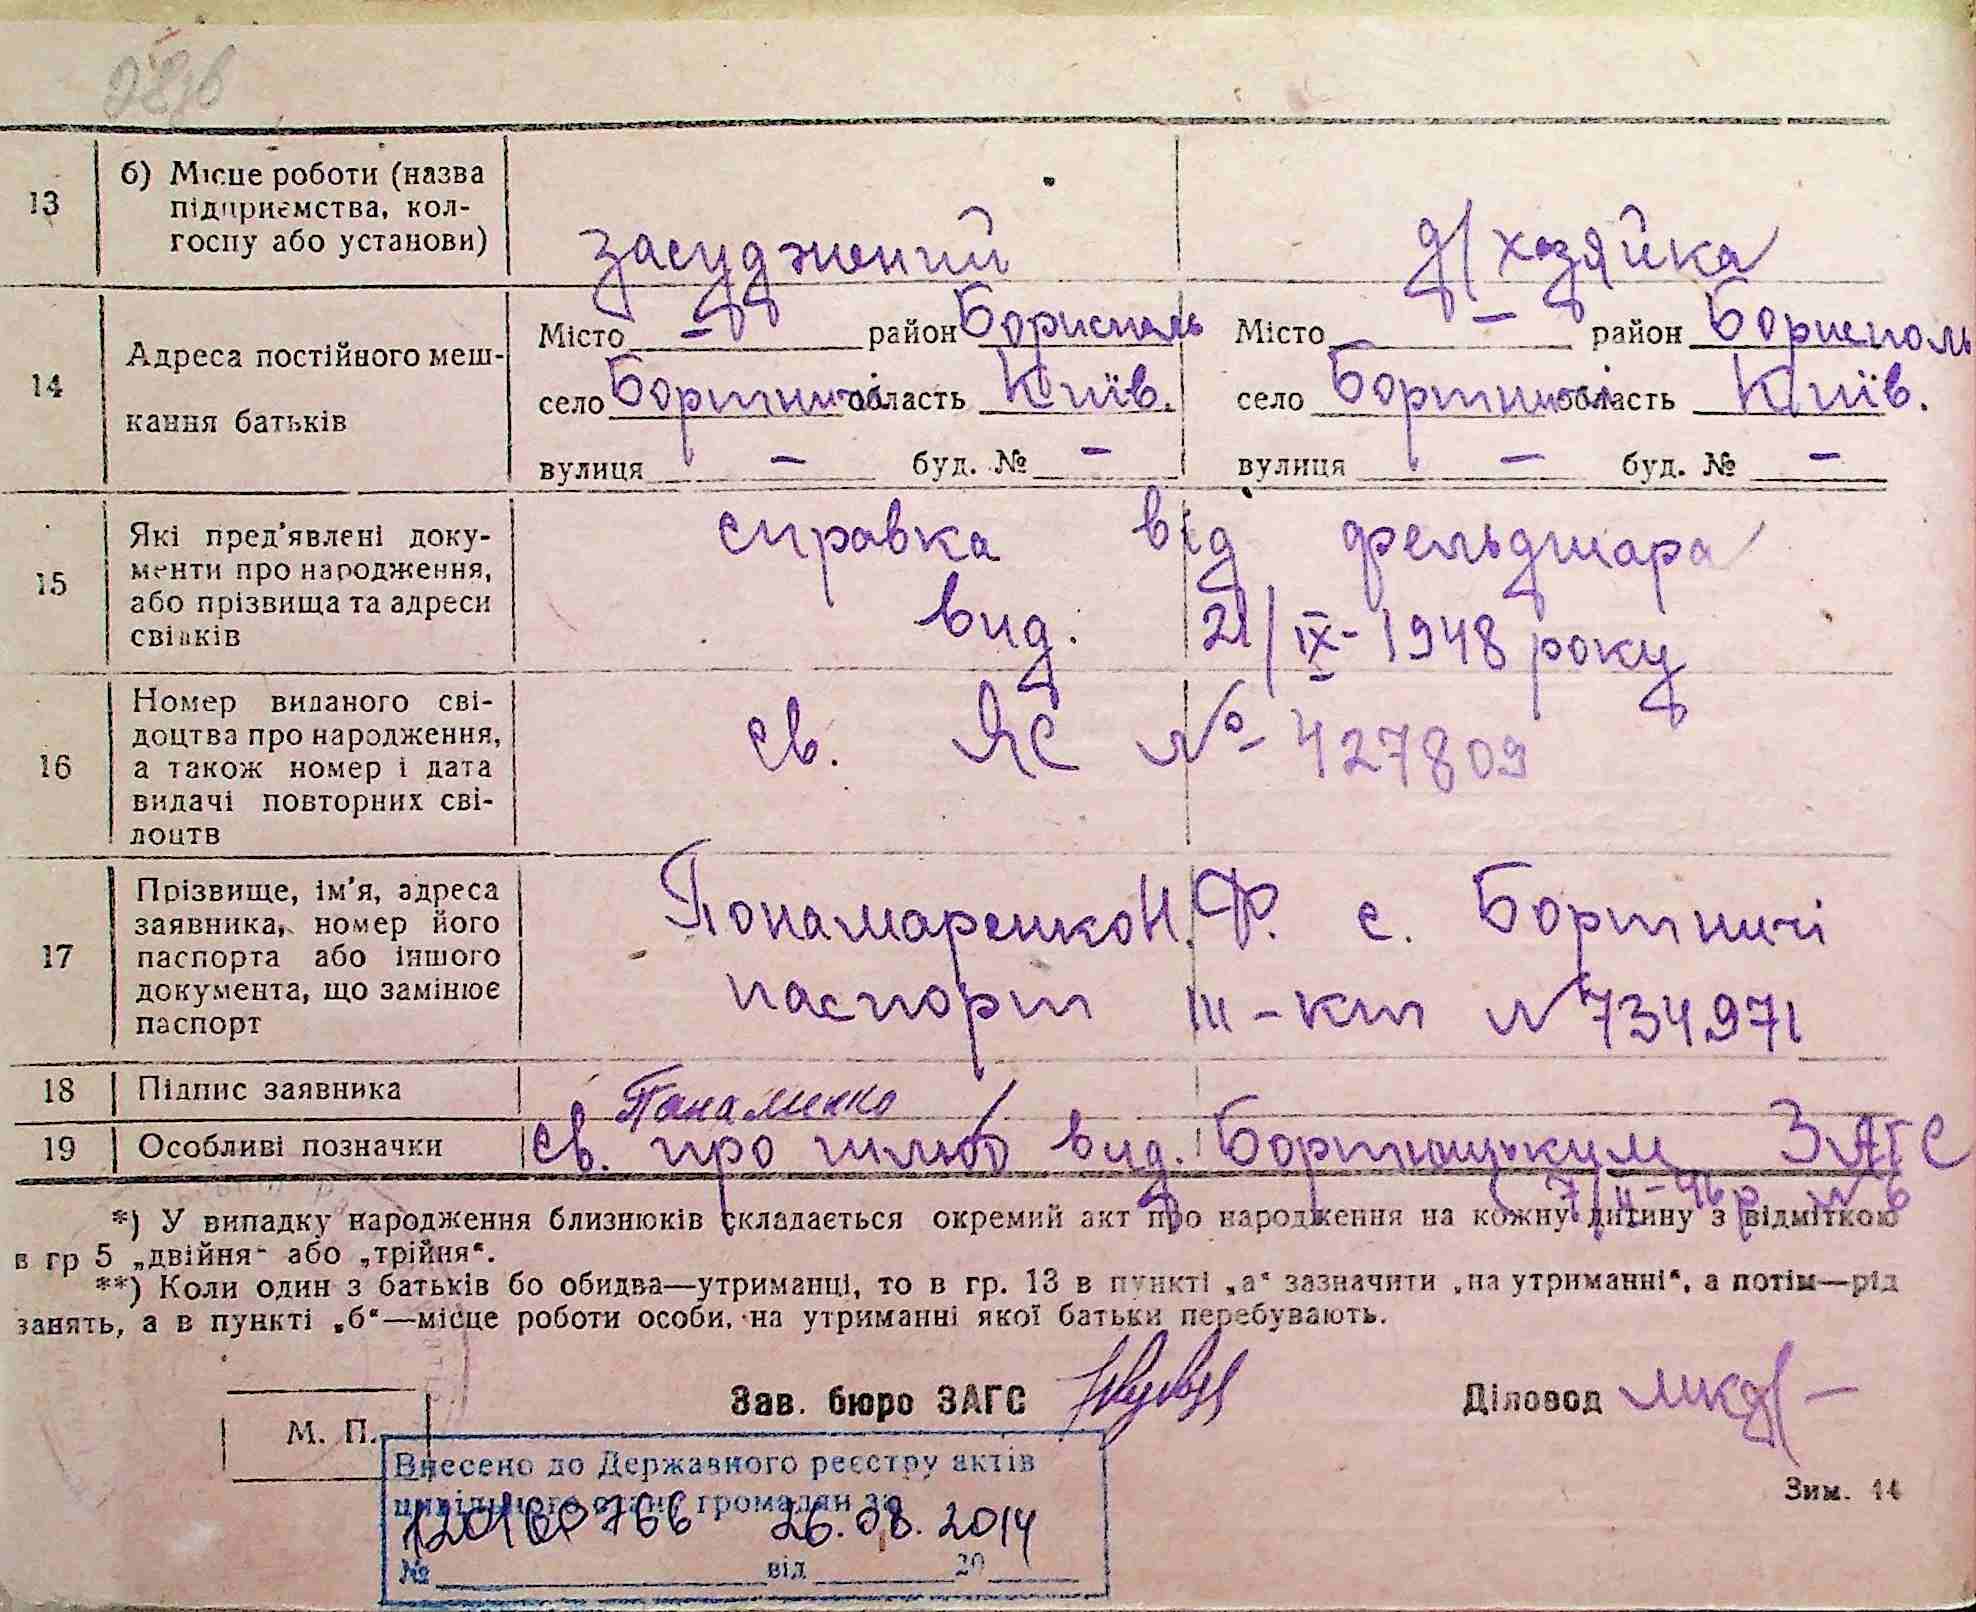 28 зв
13 б) Місце роботи (назва підприємства, колгоспу або установи) засуджений д/хазяйка
14 Адреса постійного мешкання батьків
Місто — район Бориспаль Місто — район Борисполь
село Бортничі область Київ. село Бортничі область Київ.
вулиця — буд. № — вулиця — буд. № —
15 Які пред'явлені документи про народження, або прізвища та адреси свідків
справка від фельдшара
вид. 21/IX-1948 року
16 Номер виданого свідоцтва про народження, а також номер і дата видачі повторних свідоцтв
св. ЯС № 427809
17 Прізвище, ім'я, адреса заявника, номер його паспорта або іншого документа, що замінює паспорт
Понамаренко Н. Ф. с. Бортничі
паспорт III-кт № 734971
18 Підпис заявника
19 Особливі позначки св. про шлюб вид. Бортницьким ЗАГС
7/II-46 р. № 6
*) У випадку народження близнюків складається окремий акт про народження на кожну дитину з відміткою
в гр 5 „двійня" або „трійня".
**) Коли один з батьків бо обидва—утриманці, то в гр. 13 в пункті „а" зазначити „на утриманні", а потім—рід
занять, а в пункті „б"—місце роботи особи, на утриманні якої батьки перебувають.
Зав. бюро ЗАГС Діловод
М. П.
Внесено до Державного реєстру актів
цивільного стану громадян за
26.08.2014
№ від 20
Зим. 14